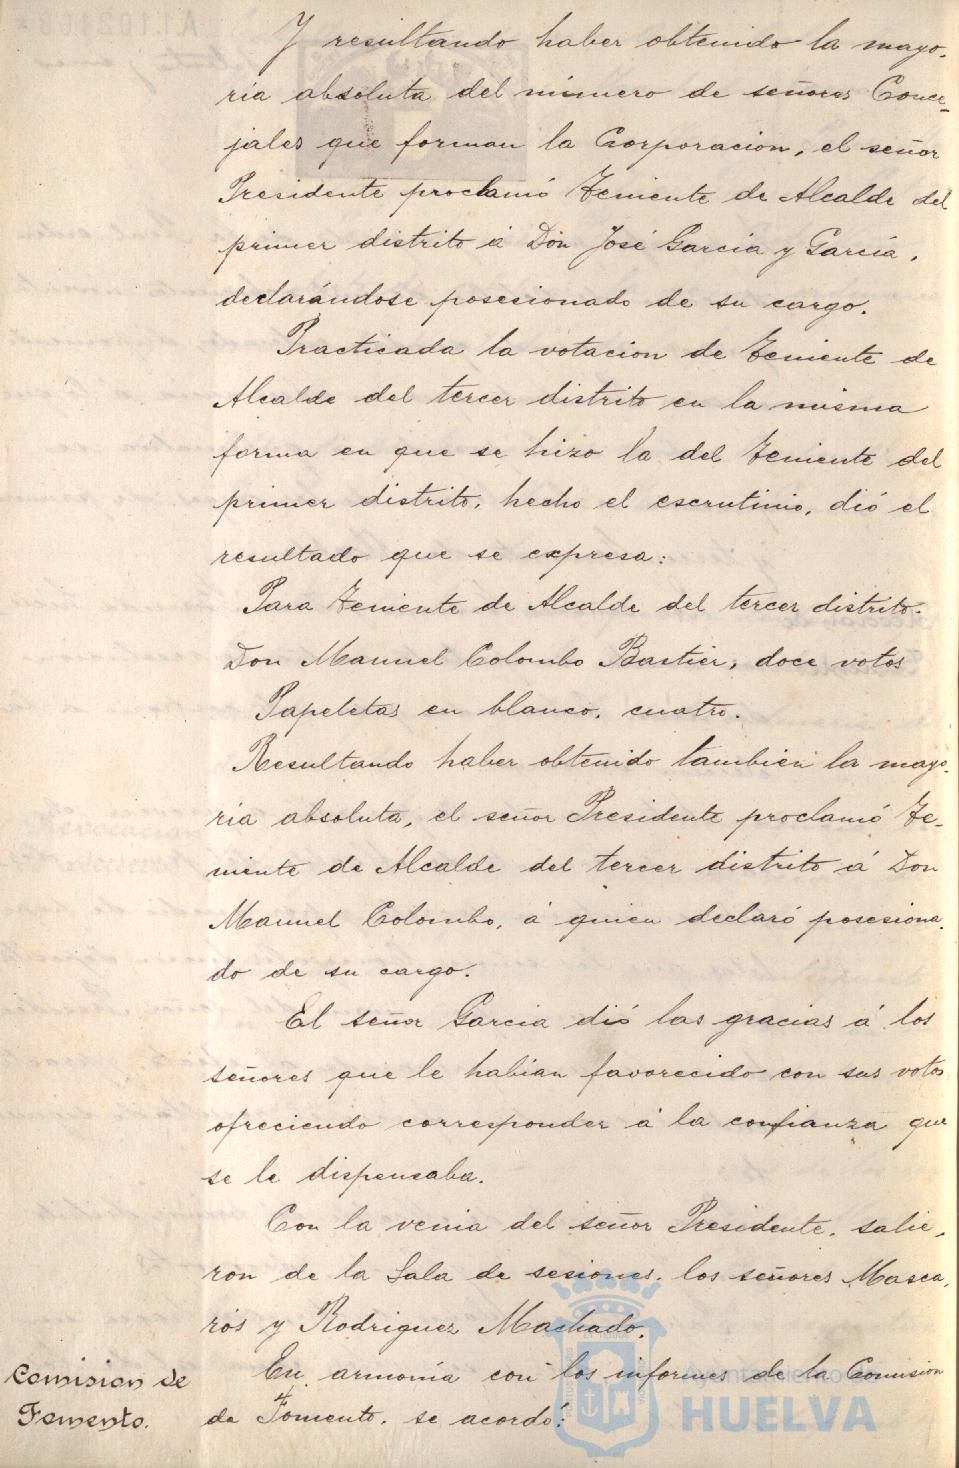 Y resultando haber obtenido la mayo-
ría absoluta del número de señores Conce-
jales que forman la Corporacion, el señor
Presidente proclamó Teniente de Alcalde del
primer distrito á Don José Garcia y García,
declarándose posesionado de su cargo.
Practicada la votacion de Teniente de
Alcalde del tercer distrito en la misma
forma en que se hizo la del Teniente del
primer distrito, hecho el escrutinio, dió el
resultado que se expresa:
Para Teniente de Alcalde del tercer distrito.
Don Manuel Colombo Bastier, doce votos
Papeletas en blanco, cuatro.
Resultando haber obtenido tambien la mayo-
ria absoluta, el señor Presidente proclamó Te-
niente de Alcalde del tercer distrito á Don
Manuel Colombo, á quien declaró posesiona-
do de su cargo.
El señor Garcia dió las gracias á los
señores que le habian favorecido con sus votos
ofreciendo corresponder á la confianza que
se le dispensaba.
Con la venia del señor Presidente, salie-
ron de la Sala de sesiones, los señores Masca-
rós y Rodriguez Machado.
Comision de
Fomento.
En armonía con los informes de la Comision
de Fomento, se acordó:
Ayuntamiento de
HUELVA